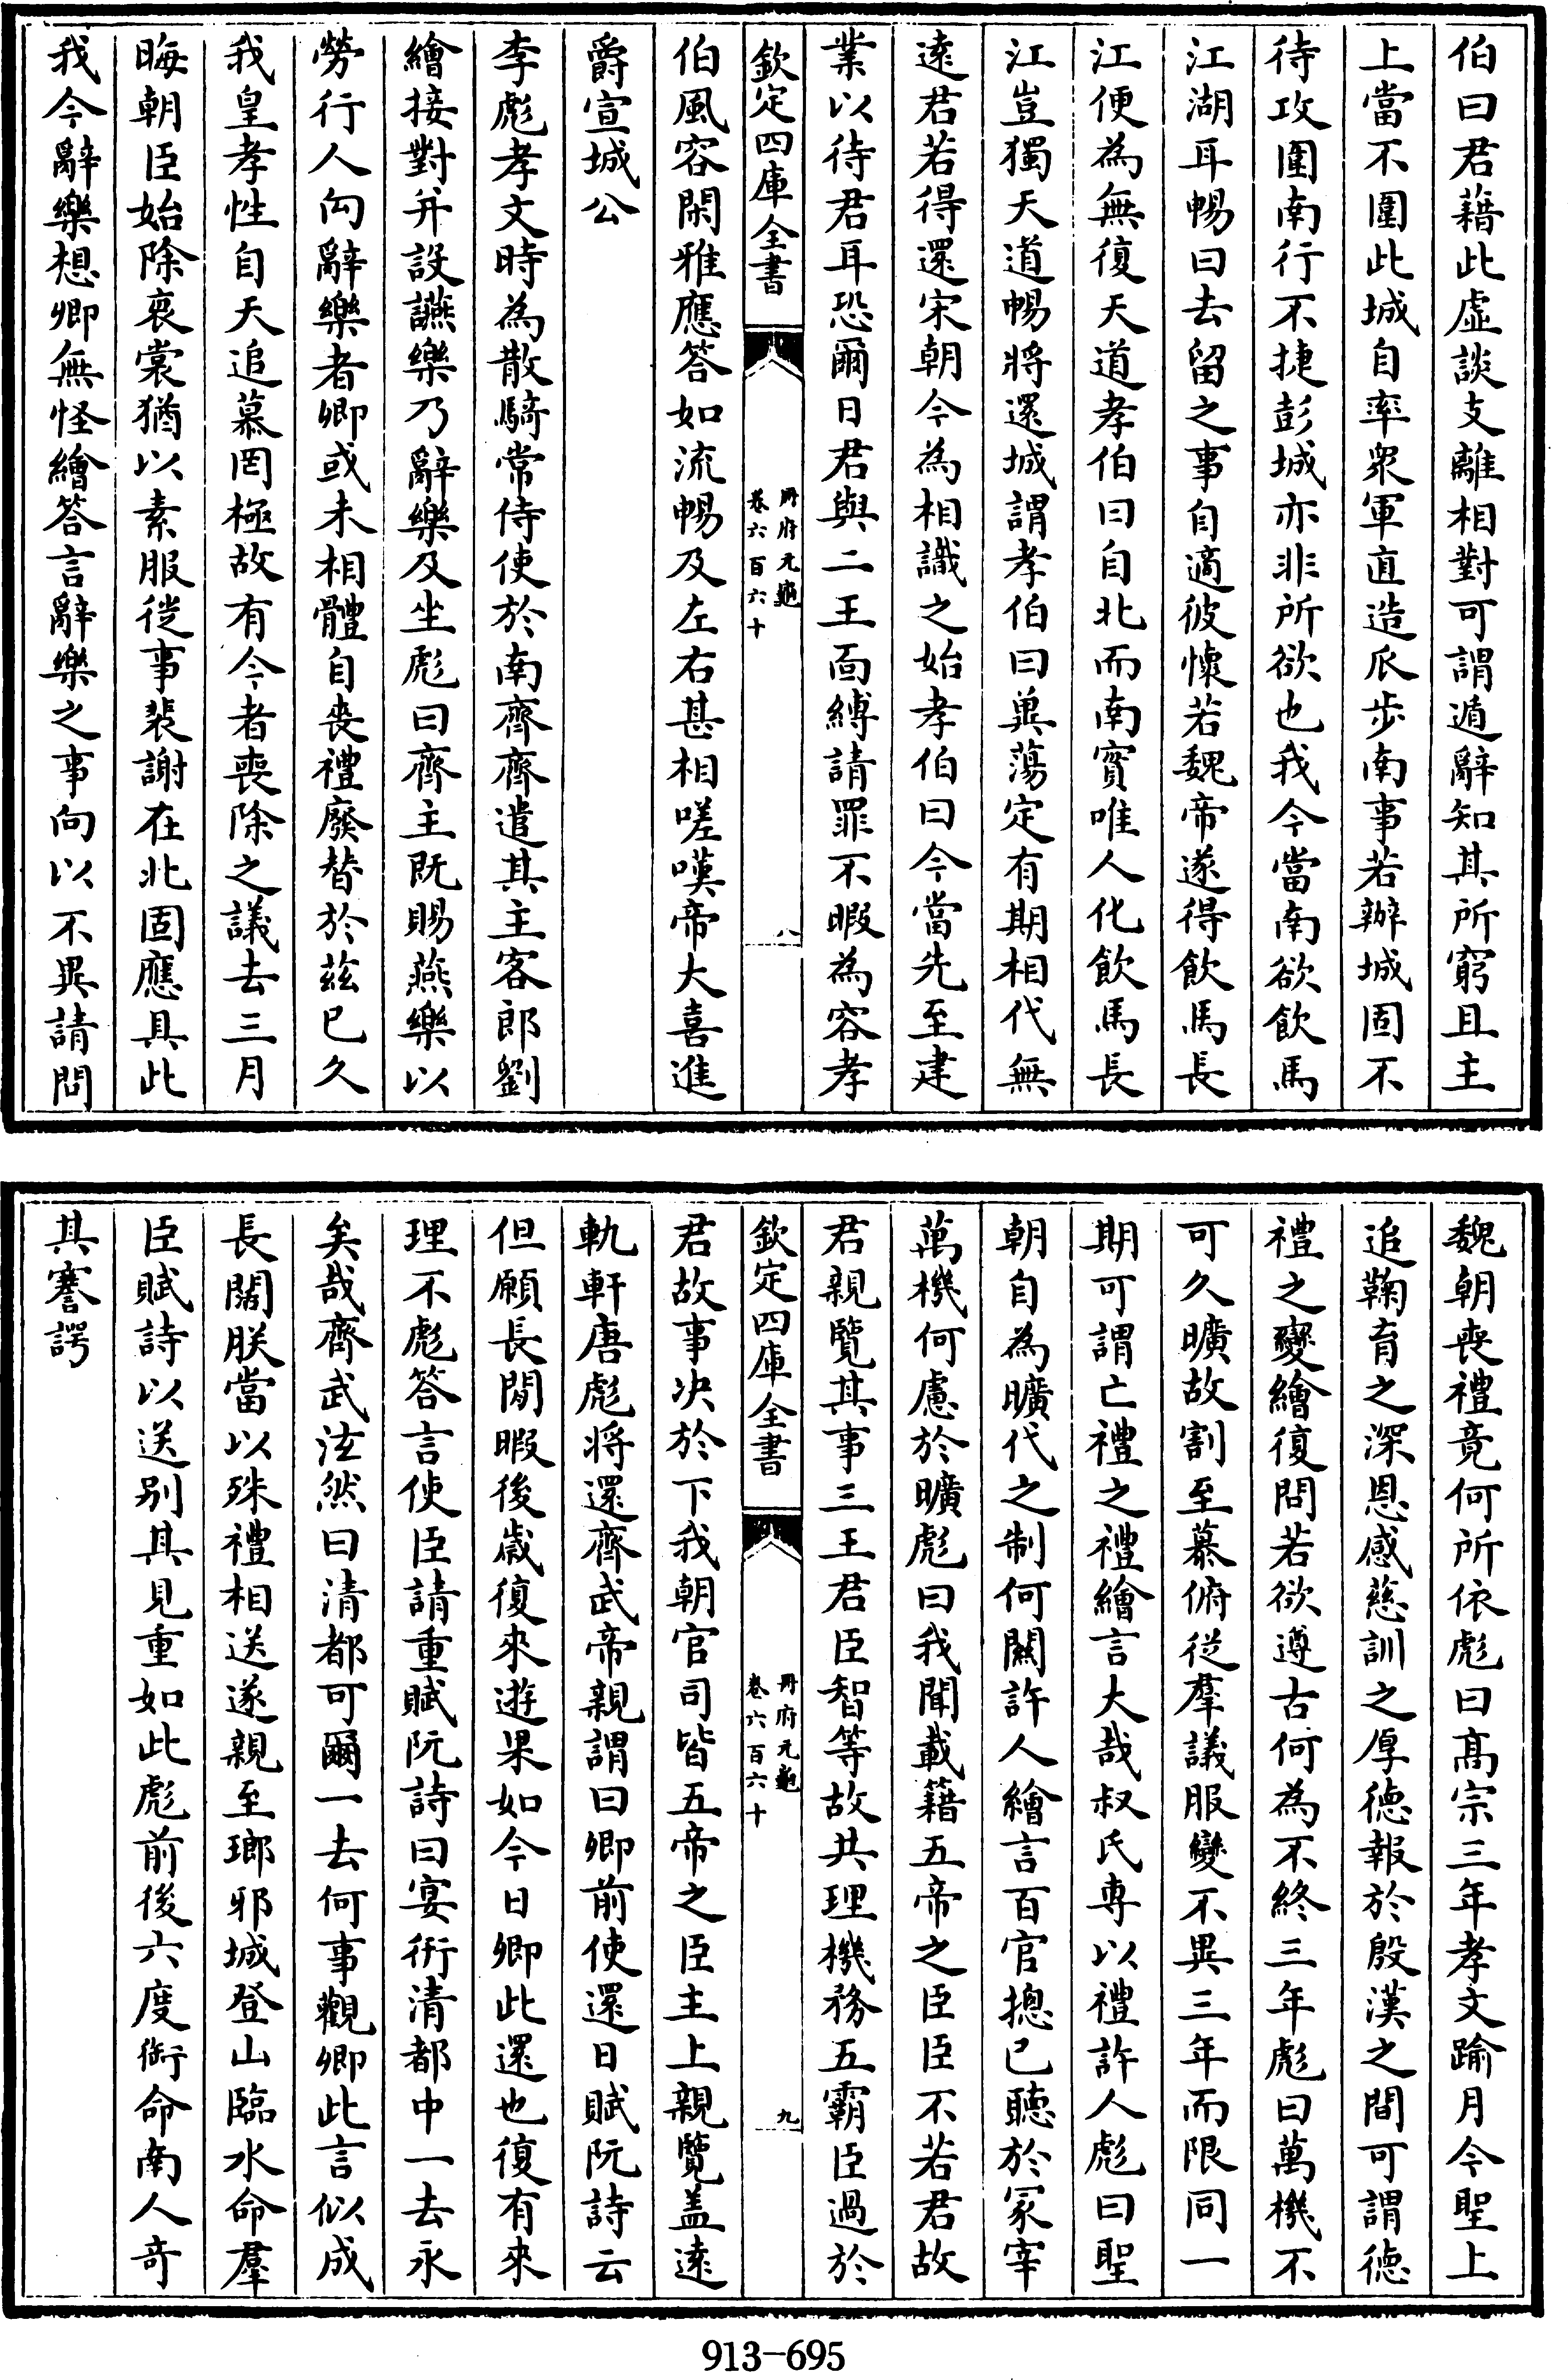 伯曰君藉此虛談支離相對可謂遁辭知其所窮且主
上當不圍此城自率衆軍直造瓜步南事若辦城固不
待攻圍南行不捷彭城亦非所欲也我今當南欲飲馬
江湖耳暢曰去留之事自適彼懷若魏帝遂得飲馬長
江便為無復天道孝伯曰自北而南實唯人化飲馬長
江豈獨天道暢將還城謂孝伯曰冀蕩定有期相代無
逺君若得還宋朝今為相識之始孝伯曰今當先至建
業以待君耳恐爾日君與二王面縛請罪不暇為容孝
欽定四庫全書
冊府元龜
卷六百六十
八
伯風容閑雅應答如流暢及左右甚相嗟嘆帝大喜進
爵宣城公
李彪孝文時為散騎常侍使於南齊齊遣其主客郎劉
繪接對并設讌樂乃辭樂及坐彪曰齊主既賜燕樂以
勞行人向辭樂者卿或未相體自喪禮廢替於茲已久
我皇孝性自天追慕罔極故有今者喪除之議去三月
晦朝臣始除衰裳猶以素服從事裴謝在北固應具此
我今辭樂想卿無怪繪答言辭樂之事向以不異請問
魏朝喪禮竟何所依彪曰髙宗三年孝文踰月今聖上
追鞠育之深恩感慈訓之厚德報於殷漢之間可謂德
禮之變繪復問若欲遵古何為不終三年彪曰萬機不
可久曠故割至慕俯從羣議服變不異三年而限同一
期可謂亡禮之禮繪言大哉叔氏専以禮許人彪曰聖
朝自為曠代之制何關許人繪言百官摠已聽於冢宰
萬機何慮於曠彪曰我聞載籍五帝之臣臣不若君故
君親覽其事三王君臣智等故共理機務五霸臣過於
欽定四庫全書
冊府元龜
卷六百六十
九
君故事决於下我朝官司皆五帝之臣主上親覽盖逺
軌軒唐彪將還齊武帝親謂曰卿前使還日賦阮詩云
但願長閒暇後歲復來遊果如今日卿此還也復有來
理不彪答言使臣請重賦阮詩曰宴衎清都中一去永
矣哉齊武泫然曰清都可爾一去何事觀卿此言似成
長闊朕當以殊禮相送遂親至瑯邪城登山臨水命羣
臣賦詩以送别其見重如此彪前後六度銜命南人竒
其謇諤
913-695